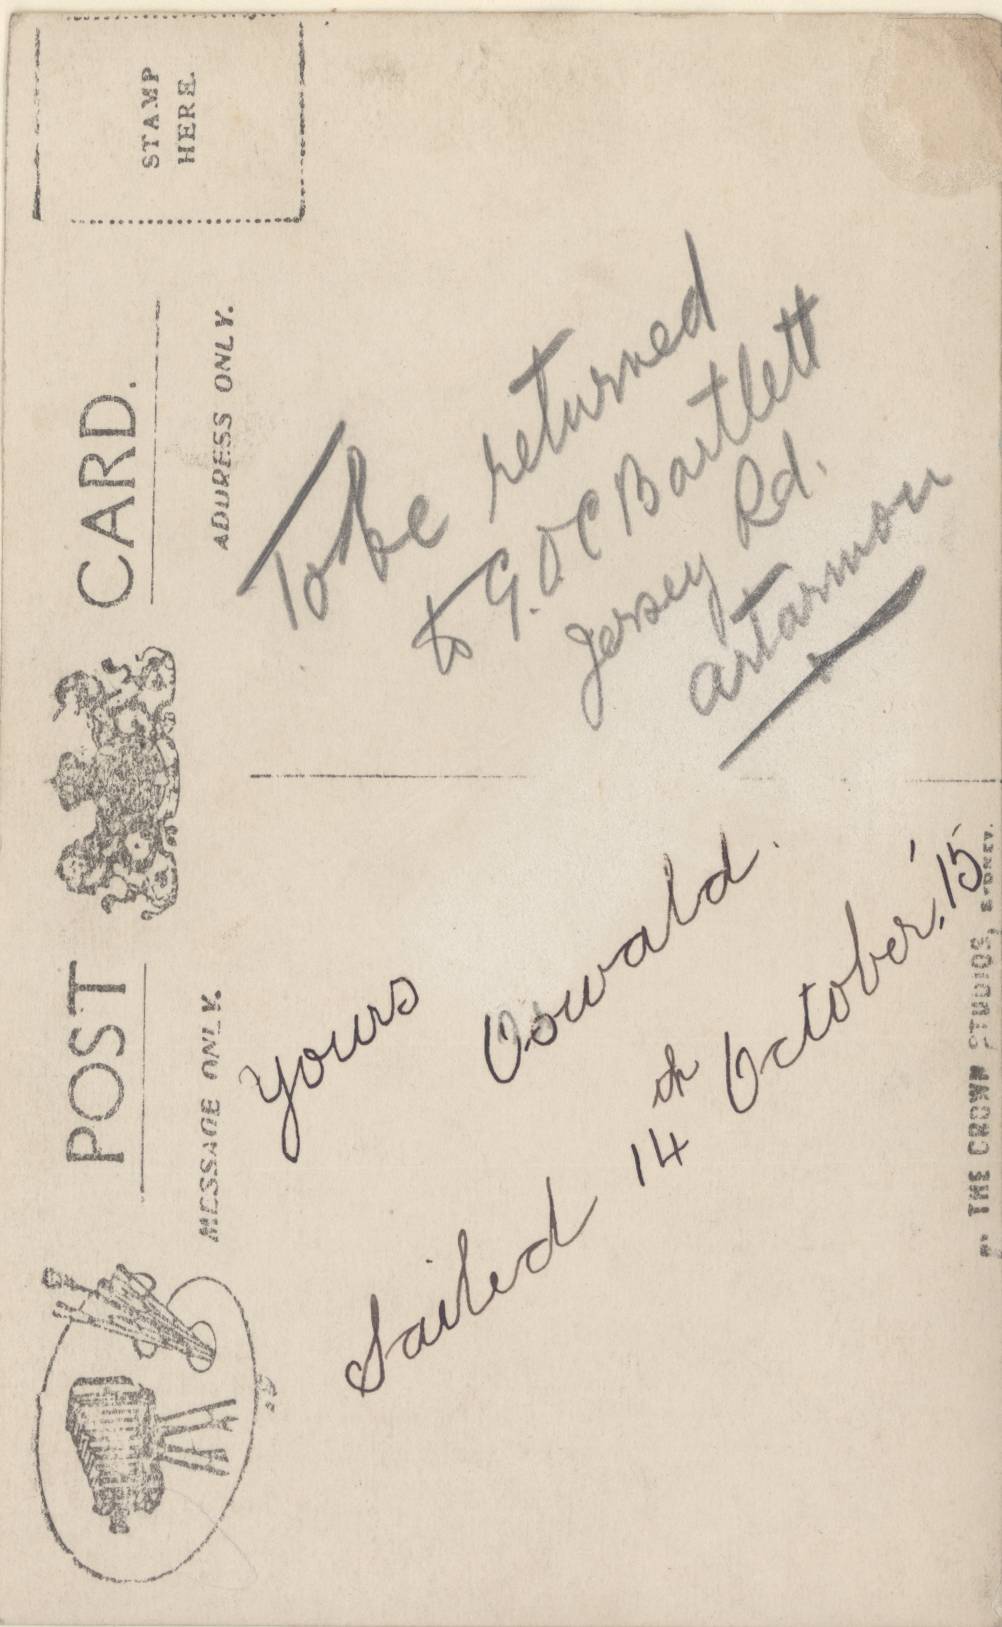 POST CARD.
STAMP
HERE.
MESSAGE ONLY.
ADDRESS ONLY.
Yours
Oswald.
Sailed 14th October, '15
To be returned
to G. O C Bartlett
Jersey Rd.
Artarmon
THE CROWN STUDIOS, SYDNEY.